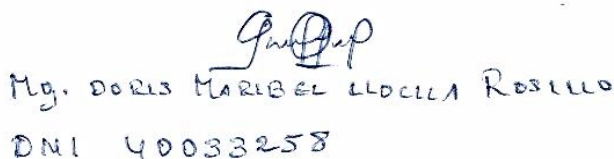 Mg. DORIS MARIBEL LLOCLLA ROSILLO
DNI 40033258